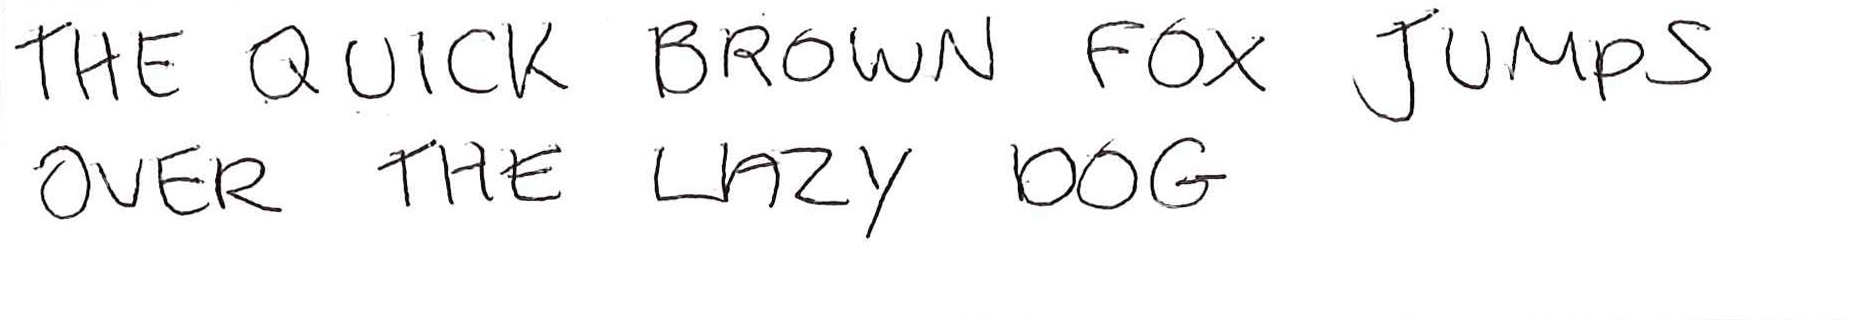 THE QUICK BROWN FOX JUMPS
OVER THE LAZY DOG